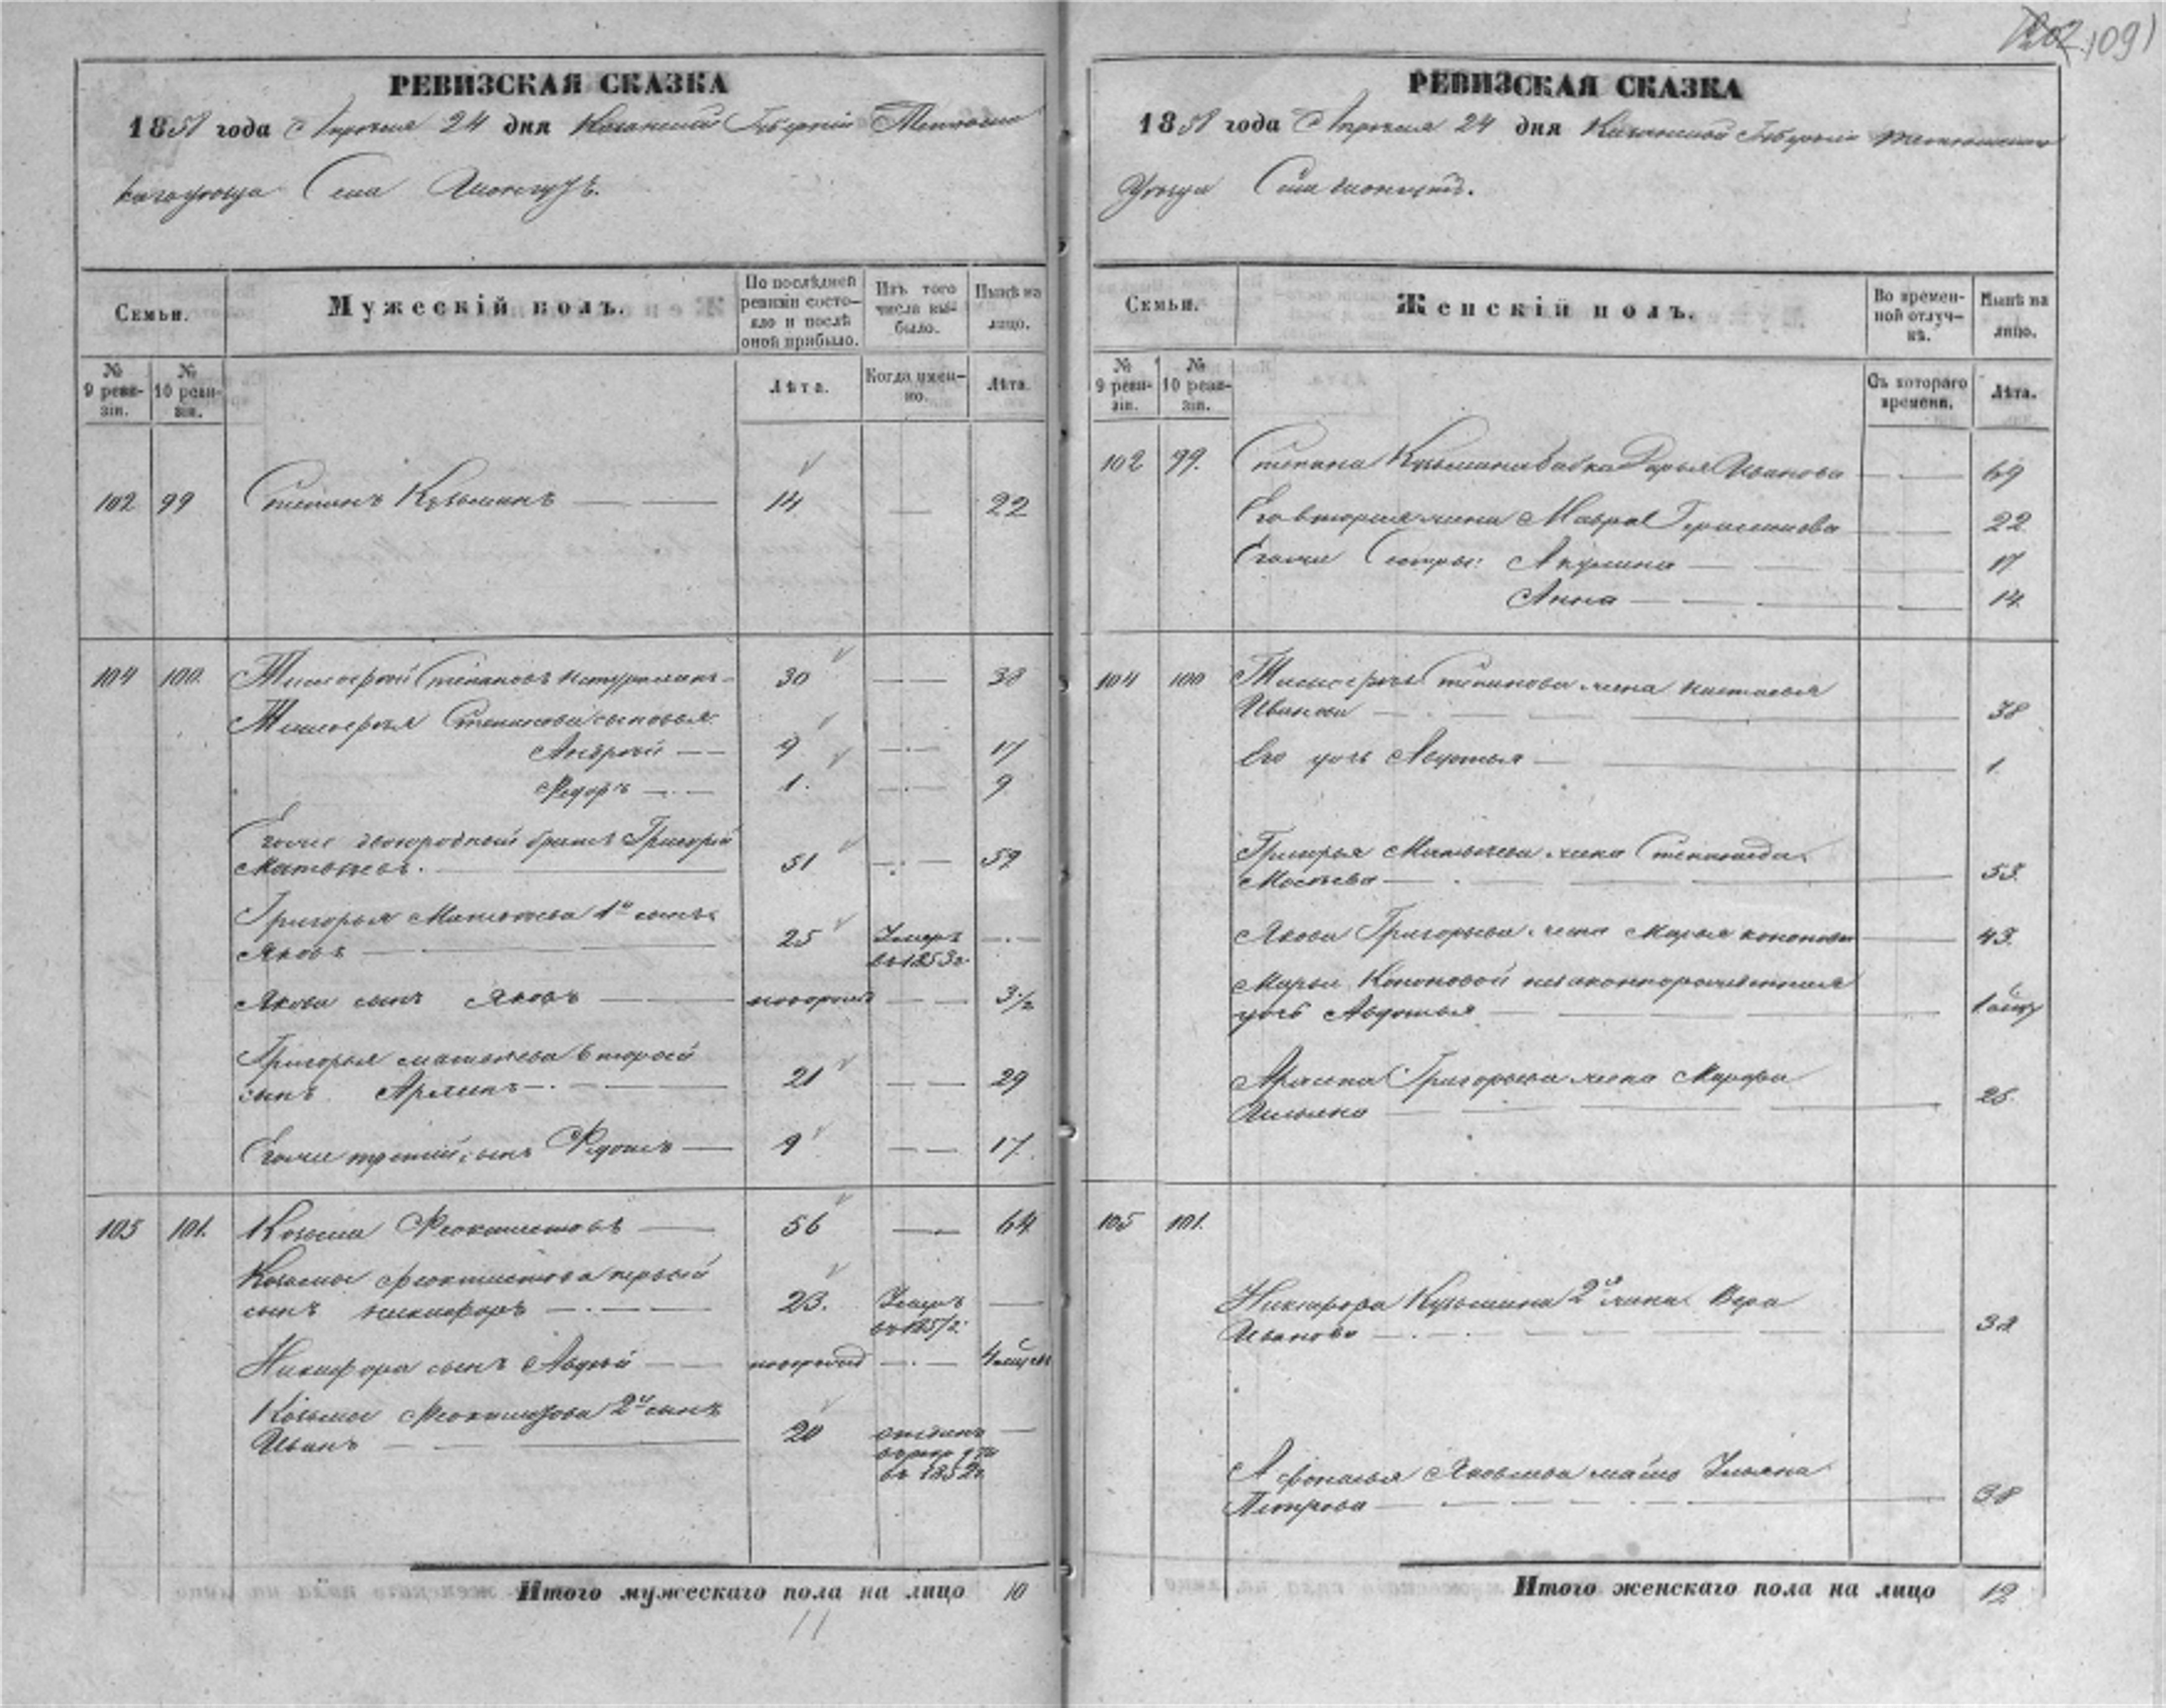 202 1091
РЕВИЗСКАЯ СКАЗКА
1858 года Апреля 24 дня Казанской Губернiи Тетюш
скаго уезда Села
Семьи.
Мужескiй полъ.
По послѣдней ревизiи состояло и послѣ оной прибыло.
Изъ того числа выбыло.
Нынѣ на лицо.
№ 9 ревизiи.
№ 10 ревизiи.
Лѣта.
Когда именно.
Лѣта.
102 99 Степанъ Кузьминъ 14 22
104 100 Тимофей Степановъ 30 38
Тимофея Степанова сыновья:
Андрей 9 17
Федоръ 1. 9
Егоже двоюродный братъ Григорiй
Матвѣевъ. 51 59
Григорья Матвѣева 1й сынъ
Яковъ 25 Умеръ въ 1853 г.
Якова сынъ Яковъ новорожд 3½
Григорья Матвѣева второй
сынъ 21 29
Егоже третiй сынъ 9 17
105 101. Козьма Феоктистовъ 56 64
Козьмы Феоктистова первый
сынъ Никифоръ 23. Умеръ
Никифора сынъ Авдей новорожд 4 месяц
Козьмы Феоктистова 2й сынъ
Иванъ 20 отданъ
въ рекруты
въ 1852 г.
Итого мужескаго пола на лицо 10
11
РЕВИЗСКАЯ СКАЗКА
1858 года Апреля 24 дня Казанской Губернiи Тетюшскаго
Уезда Села
Семьи.
Женскiй полъ.
Во временной отлучкѣ.
Нынѣ на лицо.
№ 9 ревизiи.
№ 10 ревизiи.
Съ котораго времени.
Лѣта.
102 99. Степана Кузьмина бабка Дарья Иванова 69
Его вторая жена Мавра Герасимова 22
Егоже Сестры: Акулина 17
Анна 14
104 100 Тимофея Степанова жена Настасья
Иванова 38
Его дочь Авдотья 1
Григорья Матвѣева жена Степанида
Мосѣева 53
Якова Григорьева жена Марья Кононова 43.
Марьи Кононовой незаконнорожденная
дочь Авдотья
Григорьева жена Марфа
25.
105 101.
Никифора Кузьмина 2я жена Вера
Иванова 32
Афонасья Яковлева мать Ульяна
Петрова 38
Итого женскаго пола на лицо 12